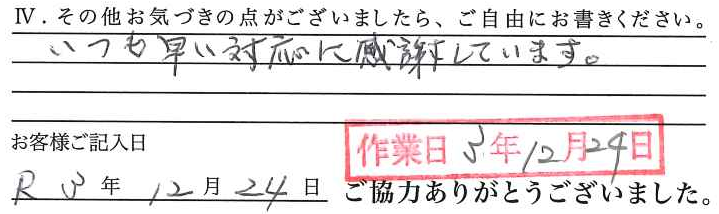 Ⅳ．その他お気づきの点がございましたら、ご自由にお書きください。
いつも早い対応に感謝しています。
お客様ご記入日
作業日 5年12月24日
R 5 年 12 月 24 日
ご協力ありがとうございました。